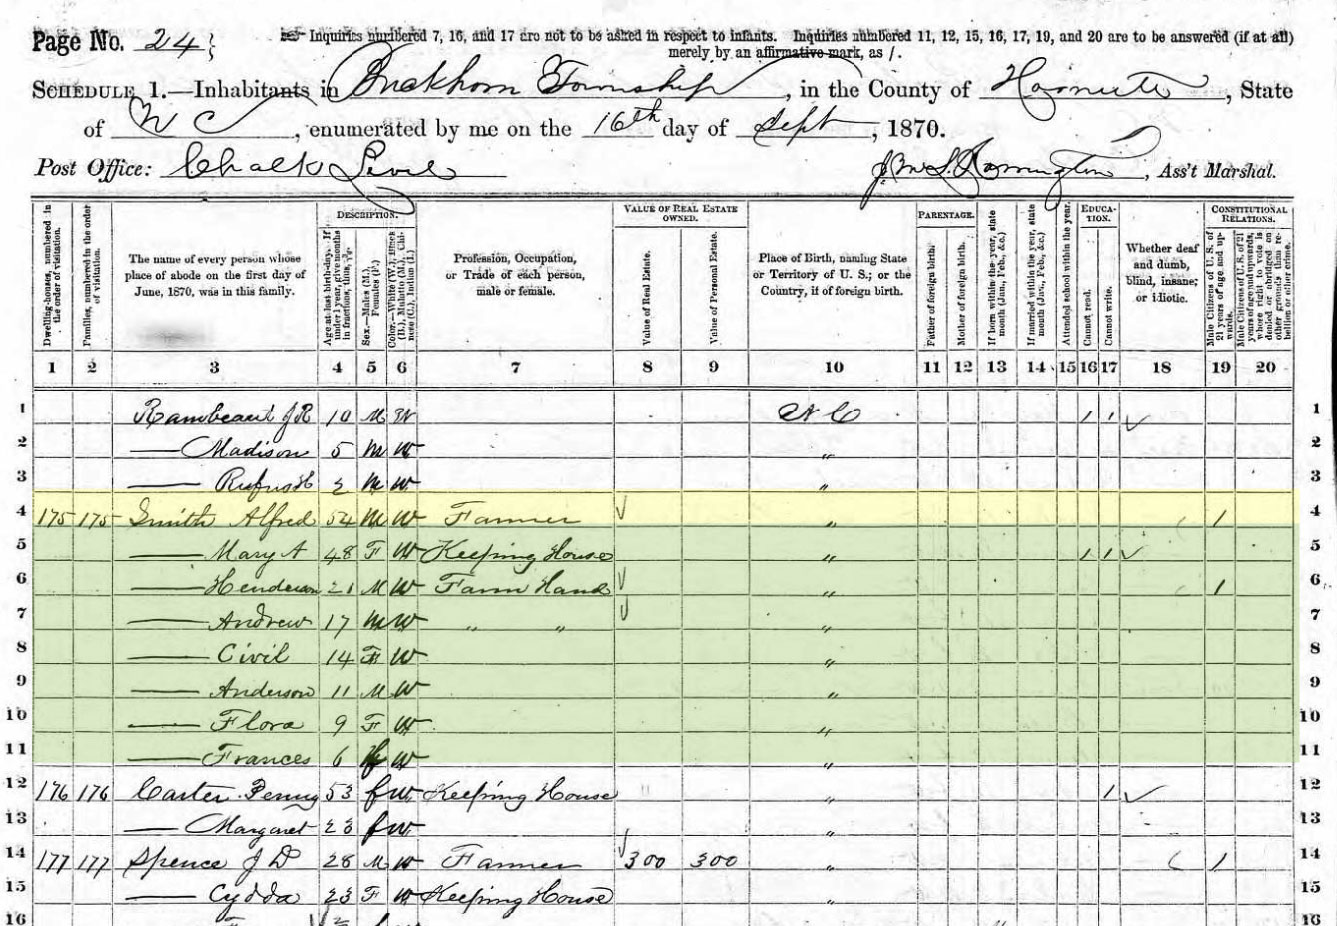 Page No. 24
☞ Inquiries numbered 7, 16, and 17 are not to be asked in respect to infants. Inquiries numbered 11, 12, 15, 16, 17, 19, and 20 are to be answered (if at all)
merely by an affirmative mark, as /.
Schedule 1.—Inhabitants in Buckhorn Township, in the County of Harnett, State
of N C, enumerated by me on the 16th day of Sept, 1870.
Post Office: Chalk Level
, Ass't Marshal.
Dwelling-houses, numbered in the order of visitation.
Families, numbered in the order of visitation.
The name of every person whose place of abode on the first day of June, 1870, was in this family.
Description.
Age at last birth-day. If under 1 year, give months in fractions, thus, 3/12.
Sex.—Males (M.), Females (F.)
Color.—White (W.), Black (B.), Mulatto (M.), Chinese (C.), Indian (I.)
Profession, Occupation, or Trade of each person, male or female.
Value of Real Estate Owned.
Value of Real Estate.
Value of Personal Estate.
Place of Birth, naming State or Territory of U. S.; or the Country, if of foreign birth.
Parentage.
Father of foreign birth.
Mother of foreign birth.
If born within the year, state month (Jan., Feb., &c.)
If married within the year, state month (Jan., Feb., &c.)
Attended school within the year.
Education.
Cannot read.
Cannot write.
Whether deaf and dumb, blind, insane, or idiotic.
Constitutional Relations.
Male Citizens of U. S. of 21 years of age and upwards.
Male Citizens of U. S. of 21 years of age and upwards, whose right to vote is denied or abridged on other grounds than rebellion or other crime.
1 2 3 4 5 6 7 8 9 10 11 12 13 14 15 16 17 18 19 20
1 Rambeaut J R 10 M W N C 1 1 1
2 — Madison 5 M W " 2
3 — Rufus H 2 M W " 3
4 175 175 Smith Alfred 54 M W Farmer " 1 4
5 — Mary A 48 F W Keeping House " 1 1 5
6 — Henderson 21 M W Farm Hand " 1 6
7 — Andrew 17 M W " " " 7
8 — Civil 14 F W " 8
9 — Anderson 11 M W " 9
10 — Flora 9 F W " 10
11 — Frances 6 f W " 11
12 176 176 Carter Penny 53 f W Keeping House " 1 12
13 — Margaret 23 f W " 13
14 177 177 Spence J D 28 M W Farmer 300 300 " 1 14
15 — Cydda 23 F W Keeping House " 15
16 16